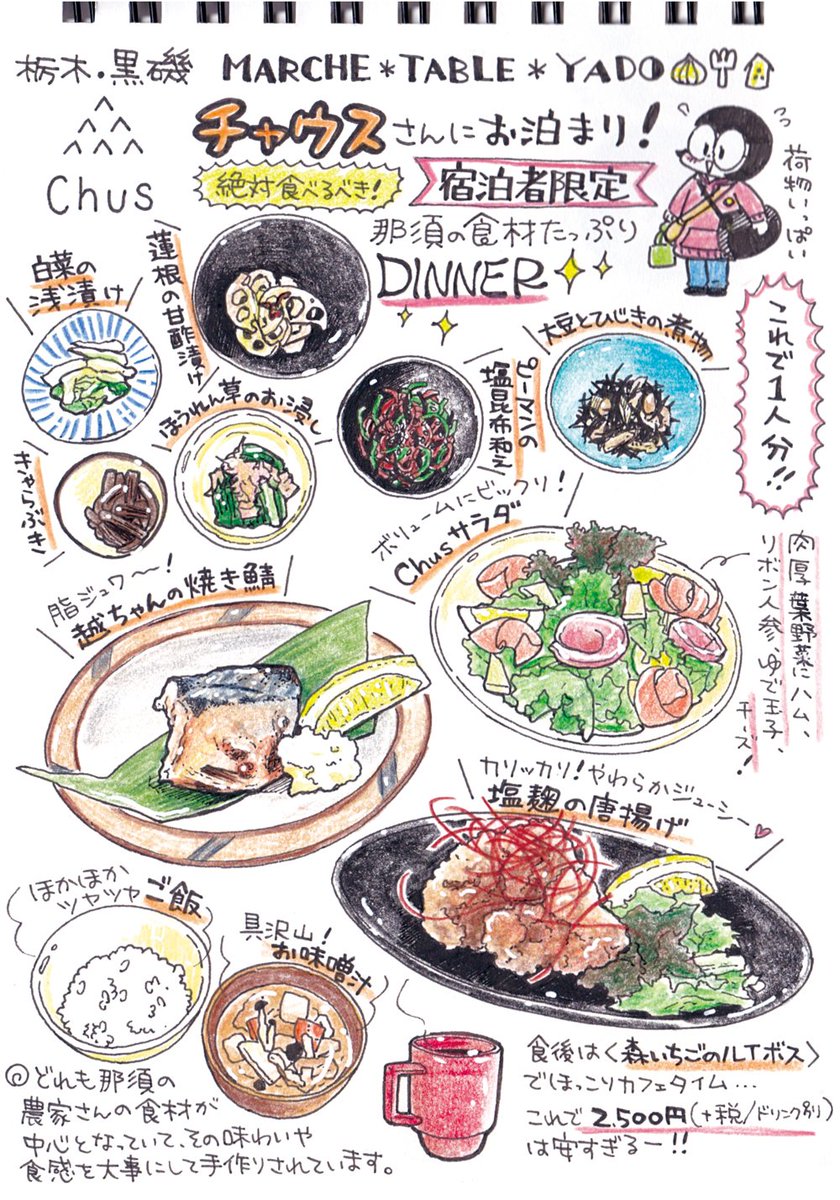 栃木・黒磯 MARCHE*TABLE*YADO
Chus
チャウスさんにお泊まり!
絶対食べるべき!
宿泊者限定
那須の食材たっぷり
DINNER
荷物いっぱい
これで1人分!!
白菜の
浅漬け
蓮根の甘酢漬け
ほうれん草のお浸し
ピーマンの
塩昆布和え
大豆とひじきの煮物
きゃらぶき
ボリュームにビックリ!
Chusサラダ
肉厚葉野菜にハム、
リボン人参、ゆで玉子、
チーズ!
脂ジュワ〜!
越ちゃんの焼き鯖
カリッカリ!やわらかジューシー
塩麹の唐揚げ
ほかほか
ツヤツヤ
ご飯
具沢山!
お味噌汁
どれも那須の
農家さんの食材が
中心となっていて、その味わいや
食感を大事にして手作りされています。
食後は〈森いちごのルイボス〉
でほっこりカフェタイム…
これで2,500円(+税/ドリンク別)
は安すぎるー!!